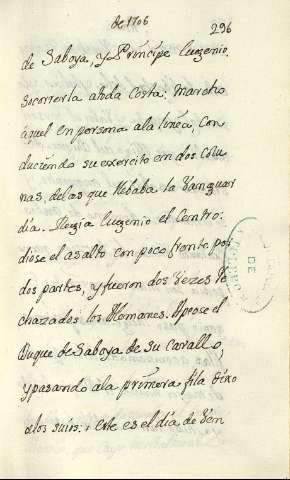 de 1706
296
de Saboya, y Principe Eugenio
socorrerla a toda Costa: marcho
aquel en persona ala linea, con
duciendo su exercito en dos colu
nas, delas que llebaba la Vanguar
dia. Regia Eugenio el Centro:
diose el asalto con poco frente por
dos partes, y fueron dos vezes Re
chazados los Alemanes. Apeose el
Duque de Saboya de su Cavallo,
y pasando ala primera fila dixo
alos suios: este es el dia de Ven
DE